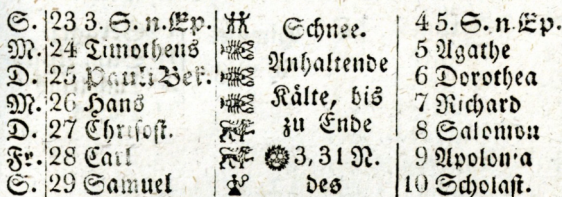 S. 23 3. S. n. Ep. Schnee. 4 5. S. n. Ep.
M. 24 Timotheus Anhaltende 5 Agathe
D. 25 Pauli Bek. Kälte, bis 6 Dorothea
M. 26 Hans zu Ende 7 Richard
D. 27 Chrisost. 3, 31 N. 8 Salomon
Fr. 28 Carl des 9 Apolonia
S. 29 Samuel 10 Scholast.